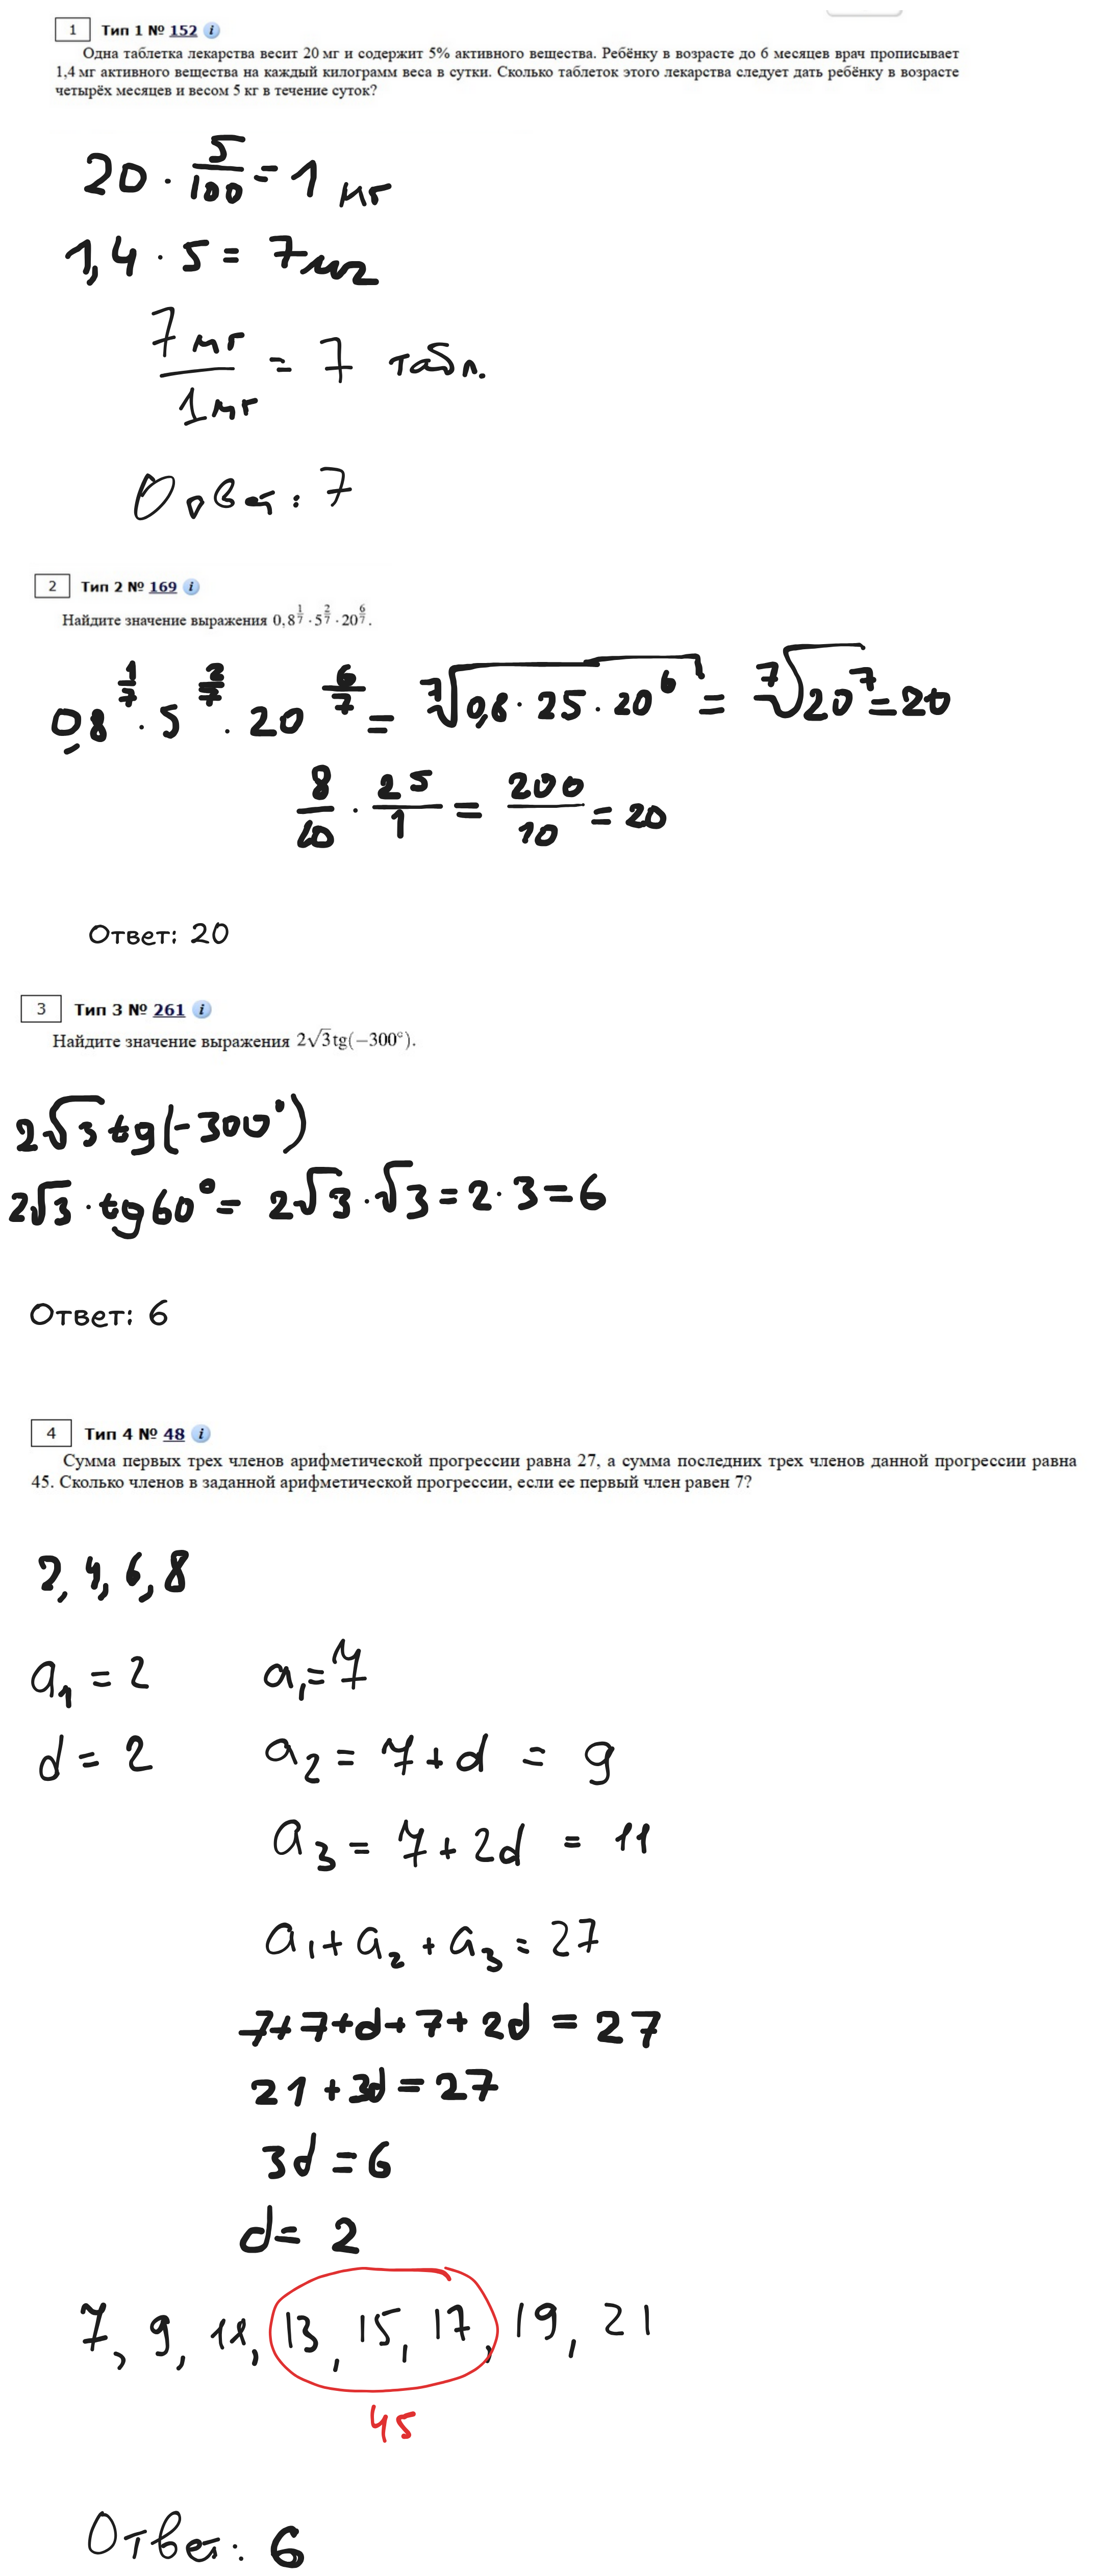 1 Тип 1 № 152 i
Одна таблетка лекарства весит 20 мг и содержит 5% активного вещества. Ребёнку в возрасте до 6 месяцев врач прописывает
1,4 мг активного вещества на каждый килограмм веса в сутки. Сколько таблеток этого лекарства следует дать ребёнку в возрасте
четырёх месяцев и весом 5 кг в течение суток?
20 · 5/100 = 1 мг
1,4 · 5 = 7 мг
7 мг / 1 мг = 7 табл.
Ответ: 7
2 Тип 2 № 169 i
Найдите значение выражения 0,8^(1/7) · 5^(2/7) · 20^(6/7).
0,8^(1/7) · 5^(2/7) · 20^(6/7) = ⁷√(0,8 · 25 · 20⁶) = ⁷√(20⁷) = 20
8/10 · 25/1 = 200/10 = 20
Ответ: 20
3 Тип 3 № 261 i
Найдите значение выражения 2√3 tg(−300°).
2√3 tg(-300°)
2√3 · tg 60° = 2√3 · √3 = 2 · 3 = 6
Ответ: 6
4 Тип 4 № 48 i
Сумма первых трех членов арифметической прогрессии равна 27, а сумма последних трех членов данной прогрессии равна
45. Сколько членов в заданной арифметической прогрессии, если ее первый член равен 7?
2, 4, 6, 8
a₁ = 2 a₁ = 7
d = 2 a₂ = 7 + d = 9
a₃ = 7 + 2d = 11
a₁ + a₂ + a₃ = 27
7 + 7 + d + 7 + 2d = 27
21 + 3d = 27
3d = 6
d = 2
7, 9, 11, 13, 15, 17, 19, 21
45
Ответ: 6